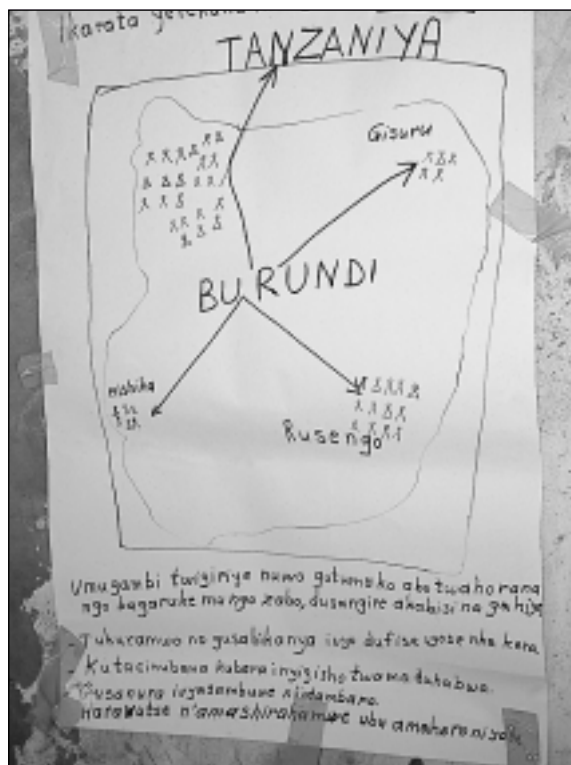 Ikarata
TANZANIYA
Gisuru
BURUNDI
Rusengo
Umugambi twigiriye nuwo gutumako abo twahorana
ngo bagaruke mu ngo zabo, dusangire akabisi na gahiye
- Tukuramwo no gusabikanya ivyo dufise wose nka kera
- Kutacinubana kubera inyigisho twama duhabwa.
- Gusanura ivyasambuwe n'indambara.
Harawutse n'amashirahamwe ubu amahoro ni yose